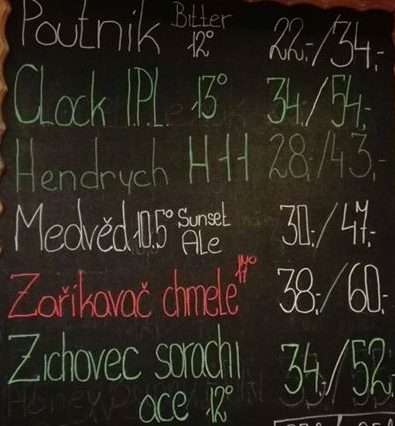 Poutník Bitter 12° 22.-/34.-
CLock I.P.L. 13° 34.-/54.-
Hendrych H11 28.-/43.-
Medvěd 10.5° Sunset Ale 30.-/47.-
Zaříkavač chmele 38.-/60.-
Zichovec sorachi 34.-/52.-
ace 12°